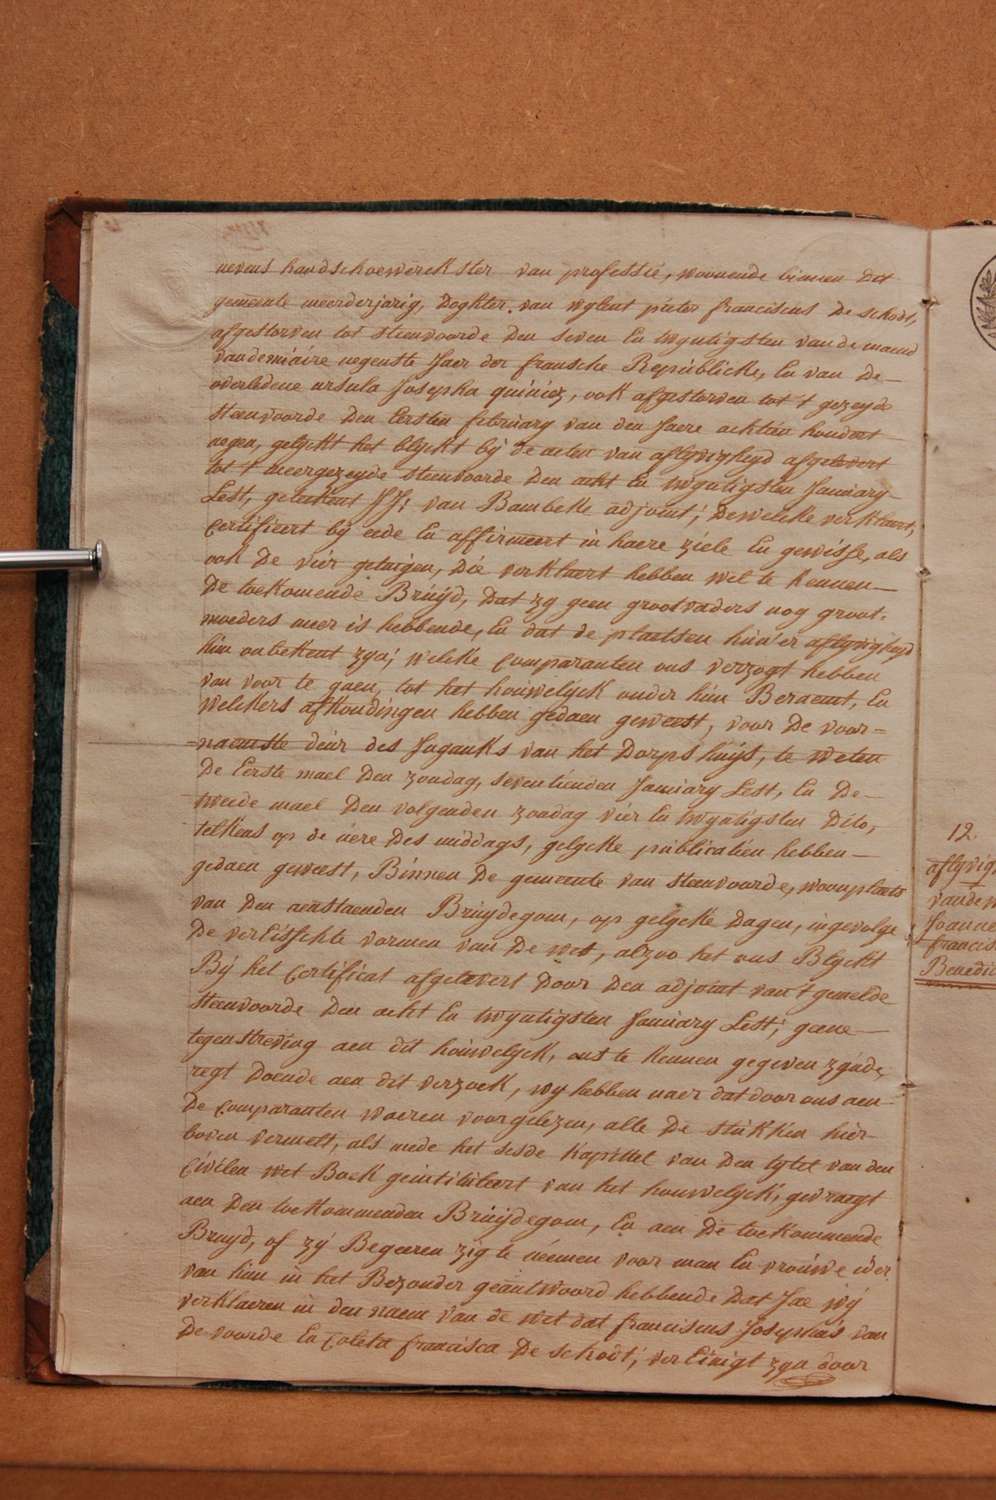 nevens handschoewerckster van professie, woonende binnen det
gemeente meerderjarig, Doghter van wylent pieter franciscus De schodt,
afgestorven tot steenvoorde Den seven En twyntigsten vande maend
vandemiaire negenste Jaer der fransche Republicke, En van De-
overledene ursula Josepha quiniez, ook afgestorven tot 't gezeyde
steenvoorde Den Eersten february van den Jaere achtien hondert
negen, gelyckt het blyckt by de acten van aflyvigheyd afgelevert
tot 't meergezeyde steenvoorde Den acht En twyntigsten January
Lest, geteekent J J: van Bambeke adjoint; Dewelcke verklaert,
Certifieert bij eede En affirmeert in haere ziele En gewisse, als
ook De vier getuigen, Die verklaert hebben wel te kennen-
De toekomende Bruyd, Dat zy geen grootvaders nog groot-
moeders meer is hebbende, En dat de plaetsen hun'er aflyvigheyd
hun onbekent zyn; welcke Comparanten ons verzogt hebben
van voor te gaen, tot het houwelyck onder hun Beraemt, En
welckers afkondingen hebben gedaen geweest, voor De voor-
naemste deur des Ingancks van het Dorps huys, te weten
De Eerste mael Den zondag, seventienden January Lest, En De-
tweede mael Den volgenden zondag vier En twyntigsten Dito,
telkens op de uere Des middags, gelycke publicatien hebben-
gedaen geweest, Binnen De gemeente van steenvoorde, woonplaets
van Den aenstaenden Bruydegom, op gelycke Dagen, ingevolge
De vereisschte vormen van De wet, alzoo het ons Blyckt
By het Certificat afgelevert Door Den adjoint van 't gemelde
steenvoorde Den acht En twyntigsten January Lest; geene-
tegenstreving aen dit houwelyck, ons te kennen gegeven zynde,
regt Doende aen dit verzoek, wy hebben naer dat door ons aen-
De Comparanten waeren voorgelezen, alle De stukken hier-
boven vermelt, als mede het sesde Kapittel van Den tytel van den
Civilen wet Boek geintituleert van het houwelyck, gevraegt
aen Den toekommenden Bruydegom, En aen De toekommende
Bruyd, of zy Begeeren zig te neemen voor man En vrouwe ider
van hun in het Bezonder geantwoord hebbende Dat Jae wy
verklaeren in den naem van de wet dat franciscus Josephus van
De voorde En Coleta francisca De schodt, vereinigt zyn door
12.
aflyvigh
vande w
Joanne
francis
Benedic